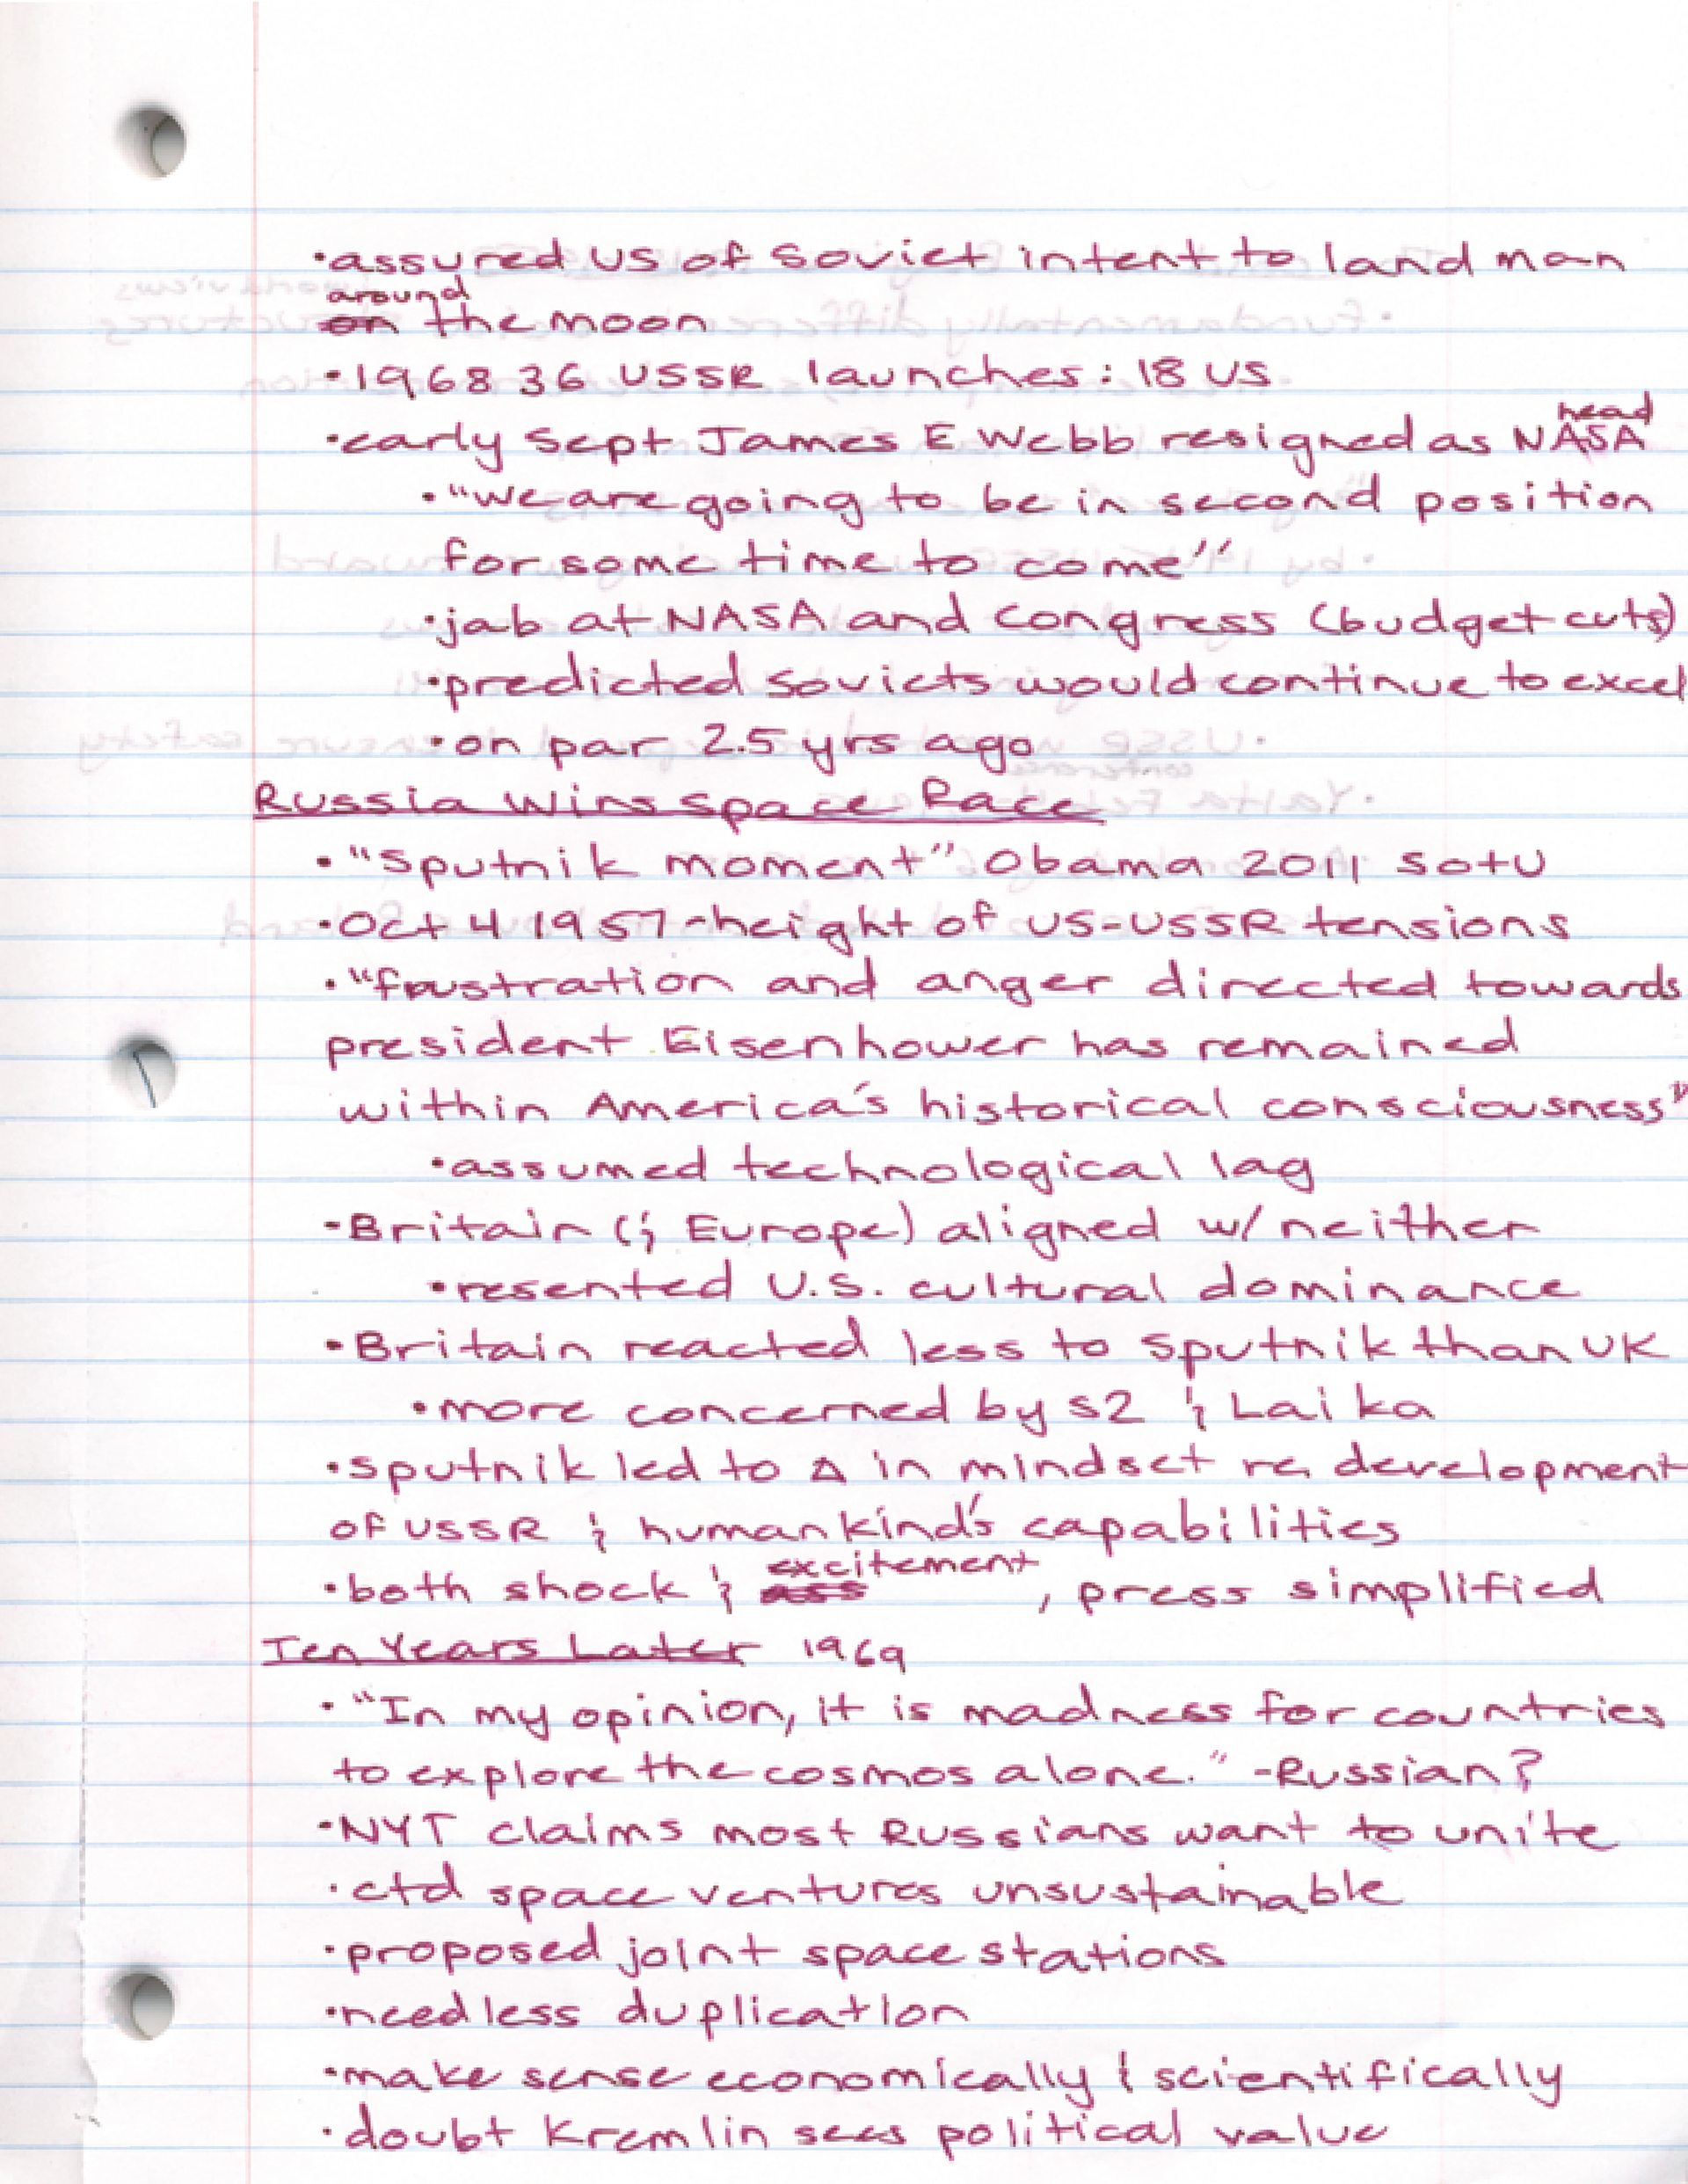 •assured us of Soviet intent to land man
around
on the moon
•1968 36 USSR launches: 18 US
head
•early Sept James E Webb resigned as NASA
•"we are going to be in second position
for some time to come"
•jab at NASA and Congress (budget cuts)
•predicted soviets would continue to excel
•on par 2.5 yrs ago
Russia Wins Space Race
•"Sputnik moment" Obama 2011 SotU
•Oct 4 1957-height of US-USSR tensions
•"frustration and anger directed towards
president Eisenhower has remained
within America's historical consciousness"
•assumed technological lag
-Britain (& Europe) aligned w/ neither
•resented U.S. cultural dominance
•Britain reacted less to Sputnik than UK
•more concerned by S2 & Laika
•Sputnik led to Δ in mindset re development
of USSR & humankind's capabilities
excitement
•both shock & ass, press simplified
Ten Years Later 1969
•"In my opinion, it is madness for countries
to explore the cosmos alone." -Russian?
•NYT claims most Russians want to unite
•ctd space ventures unsustainable
•proposed joint space stations
•needless duplication
•make sense economically & scientifically
•doubt Kremlin sees political value